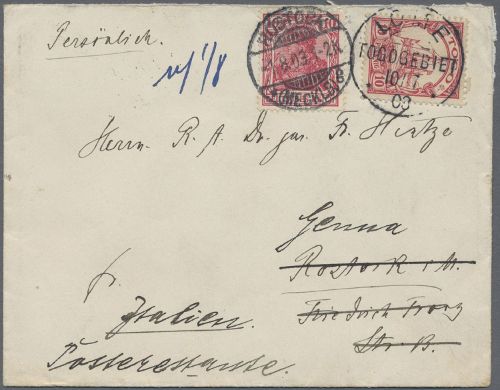 Persönlich.
ROSTOCK
8.03.
(MECKLB)
LOME
TOGOGEBIET
10/7
03
TOGO
10
Herrn R. A. Dr. jur. Fr. Hintze
Genua
Rostock i/M.
Friedrich Franz
Str. B.
Italien.
Posterestante.